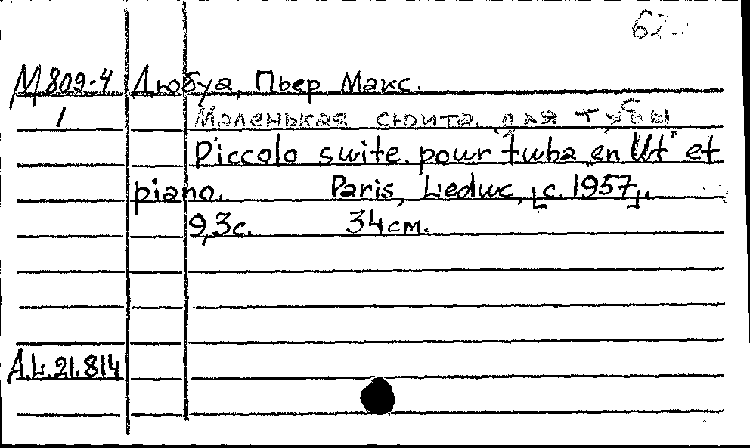 62.
М 809-4 Любуа, Пьер Макс.
1 Маленькая сюита для тубы
Piccolo suite pour tuba en Ut et
piano. Paris, Leduc, [c. 1957].
9,3с. 34см.
A.L.21.814